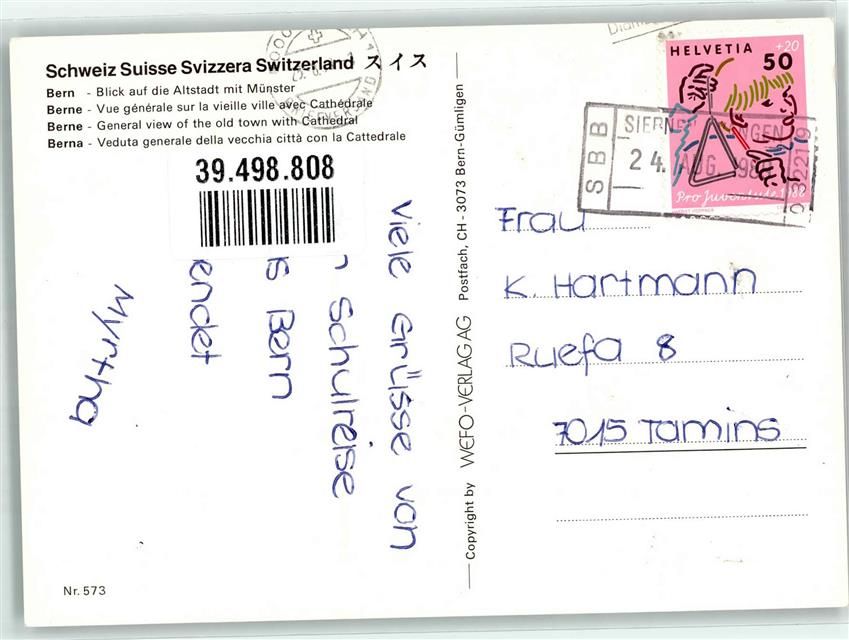 Schweiz Suisse Svizzera Switzerland スイス
Bern - Blick auf die Altstadt mit Münster
Berne - Vue générale sur la vieille ville avec Cathédrale
Berne - General view of the old town with Cathedral
Berna - Veduta generale della vecchia città con la Cattedrale
39.498.808
Viele Grüsse von
Schulreise
Bern
endet
Myrtha
Nr. 573
Copyright by WEFO-VERLAG AG Postfach, CH - 3073 Bern-Gümligen
HELVETIA
50 +20
Pro Juventute 1988
SBB
24. AUG. 198
Frau
K. Hartmann
Ruefa 8
7015 Tamins